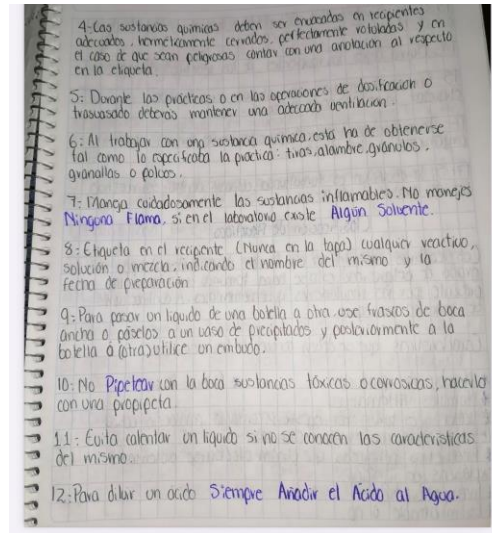 4-Las sustancias quimicas deben ser envasadas en recipientes
adecuados, hermeticamente cerrados, perfectamente rotulados y en
el caso de que sean peligrosas contar con una anotación al respecto
en la etiqueta.
5: Durante las prácticas o en las operaciones de dosificación o
trasvasado deberás mantener una adecuada ventilacion.
6: Al trabajar con una sustancia química, está ha de obtenerse
tal como lo especificaba la practica: tiras, alambre, gránulos,
granallas o polvos.
7: Maneja cuidadosamente las sustancias inflamables. No manejes
Ninguna Flama, si en el laboratorio existe Algún Solvente.
8: Etiqueta en el recipiente (Nunca en la tapa) cualquier reactivo,
solución o mezcla, indicando el nombre del mismo y la
fecha de preparación
9: Para pasar un liquido de una botella a otra, use frascos de boca
ancha o páselos a un vaso de precipitados y posteriormente a la
botella ó (otra) utilice un embudo.
10: No Pipetear con la boca sustancias tóxicas o corrosicas, hacerlo
con una propipeta.
11: Evita calentar un liquido si no se conocen las caracteristicas
del mismo.
12: Para diluir un acido Siempre Añadir el Ácido al Agua.